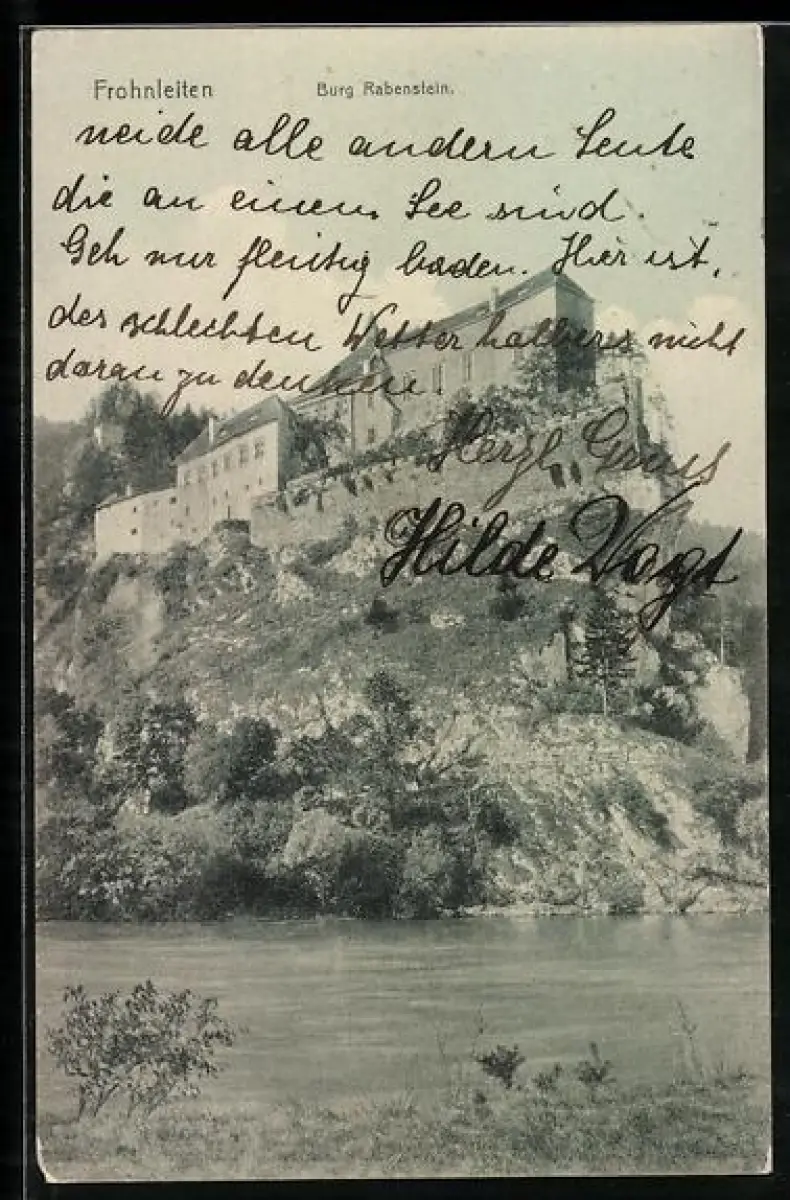 Frohnleiten Burg Rabenstein.
neide alle andern Leute
die an einem See sind.
Geh nur fleißig baden. Hier ist,
des schlechten Wetter halber nicht
daran zu denken.
Herzl. Gruss
Hilde Vogt